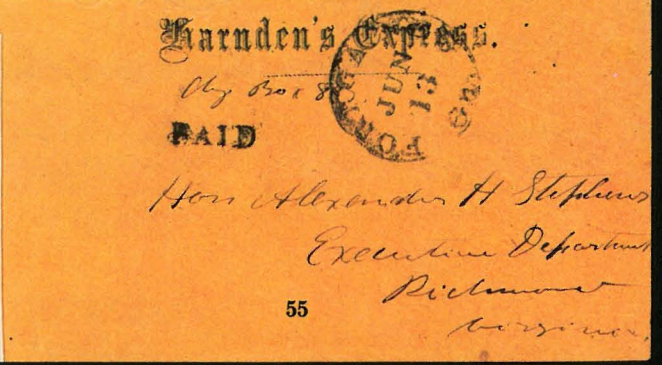 Harnden's Express.
Box 8
PAID
FORT GA
JUN
13
Hon Alexander H Stephens
Executive Department
Richmond
Virginia.
55